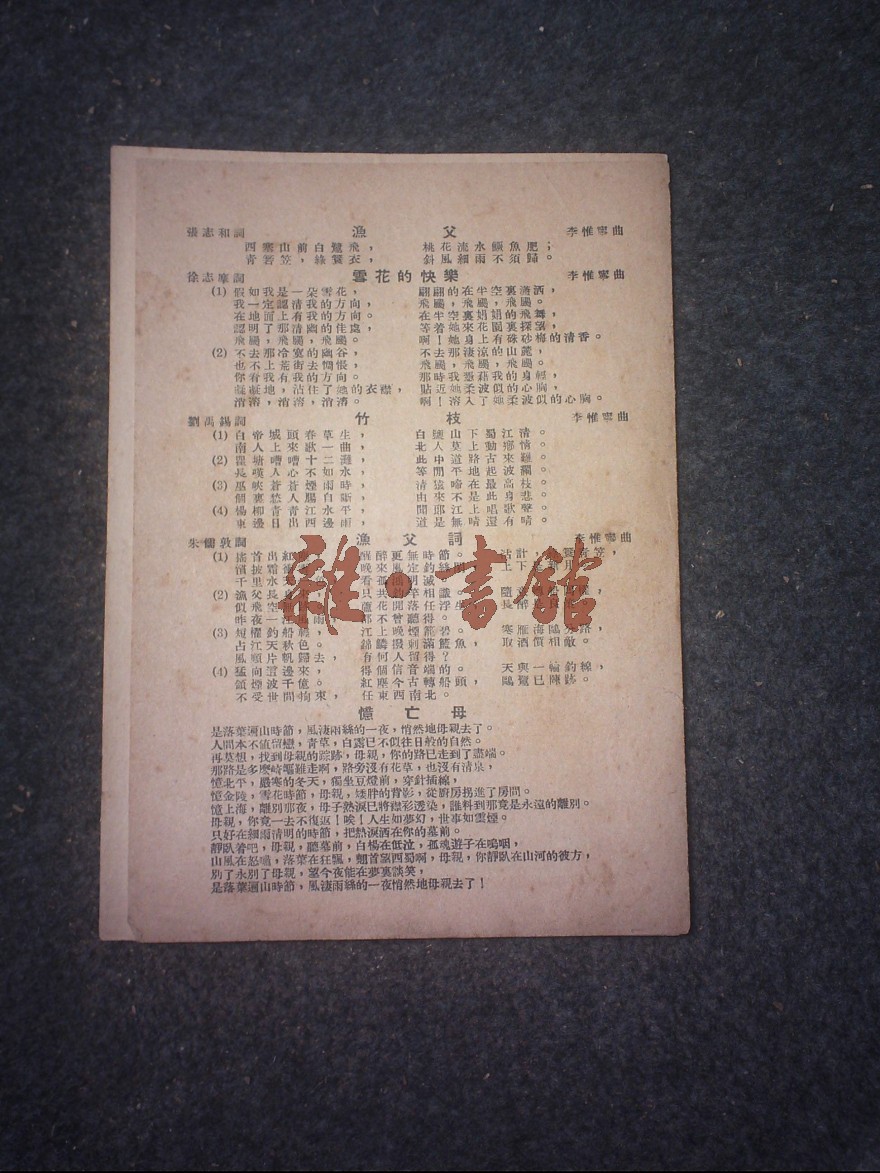 張志和詞 漁父 李惟寧曲
西塞山前白鷺飛， 桃花流水鱖魚肥；
青箬笠，綠簑衣， 斜風細雨不須歸。
徐志摩詞 雪花的快樂 李惟寧曲
(1) 假如我是一朵雪花， 翩翩的在半空裏瀟洒，
我一定認清我的方向， 飛颺，飛颺，飛颺。
在地面上有我的方向。 在半空裏娟娟的飛舞，
認明了那清幽的佳處， 等着她來花園裏探望，
飛颺，飛颺，飛颺。 啊！她身上有硃砂梅的清香。
(2) 不去那冷寞的幽谷， 不去那淒涼的山麓，
也不上荒街去惆悵， 飛颺，飛颺，飛颺。
你看我有我的方向。 那時我憑藉我的身輕，
凝凝地，沾住了她的衣襟， 貼近她柔波似的心胸，
消溶，消溶，消溶。 啊！溶入了她柔波似的心胸。
劉禹錫詞 竹枝 李惟寧曲
(1) 白帝城頭春草生， 白鹽山下蜀江清。
南人上來歌一曲， 北人莫上動鄉情。
(2) 瞿塘嘈嘈十二灘， 此中道路古來難。
長嘆人心不如水， 等閒平地起波瀾。
(3) 巫峽蒼蒼煙雨時， 清猿啼在最高枝。
個裏愁人腸自斷， 由來不是此身悲。
(4) 楊柳青青江水平， 聞郎江上唱歌聲。
東邊日出西邊雨， 道是無晴還有晴。
朱儒敦詞 漁父詞 李惟寧曲
(1) 搖首出紅 醒醉更無時節。 活計 笠，
披霜衝 來無定
千里水天 看孤鴻明滅
(2) 漁父長身 只共釣竿相識。 隨
似飛空 蘆花開落任浮生 長醉
昨夜一 雨 都不曾聽得。
(3) 短櫂釣船輕， 江上晚煙籠碧。 寒雁海鷗分路，
占江天秋色。 錦鱗撥刺滿籃魚， 取酒價相敵。
風順片帆歸去， 有何人留得？
(4) 猛向這邊來， 得個信音端的。 天與一輪釣線，
領煙波千億。 紅塵今古轉船頭， 鷗鷺已陳跡。
不受世間拘束， 任東西南北。
憶亡母
是落葉遍山時節，風淒雨絲的一夜，悄然地母親去了。
人間本不值留戀，青草，白露已不似往日般的自然。
再莫想，找到母親的踪跡，母親，你的路已走到了盡端。
那路是多麼崎嶇難走啊，路旁沒有花草，也沒有清泉，
憶北平，嚴寒的冬天，獨坐豆燈前，穿針插線，
憶金陵，雪花時節，母親，矮胖的背影，從廚房拐進了房間。
憶上海，離別那夜，母子熱淚已將綠衫透染，誰料到那竟是永遠的離別。
母親，你竟一去不復返！唉！人生如夢幻，世事如雲煙。
只好在細雨清明的時節，把熱淚洒在你的墓前。
靜臥着吧，母親，聽墓前，白楊在低泣，孤魂遊子在嗚咽，
山風在怒嘯，落葉在狂飄，翹首望西蜀啊，母親，你靜臥在山河的彼方，
別了永別了母親，望今夜能在夢裏談笑，
是落葉遍山時節，風淒雨絲的一夜悄然地母親去了！
雜·書館